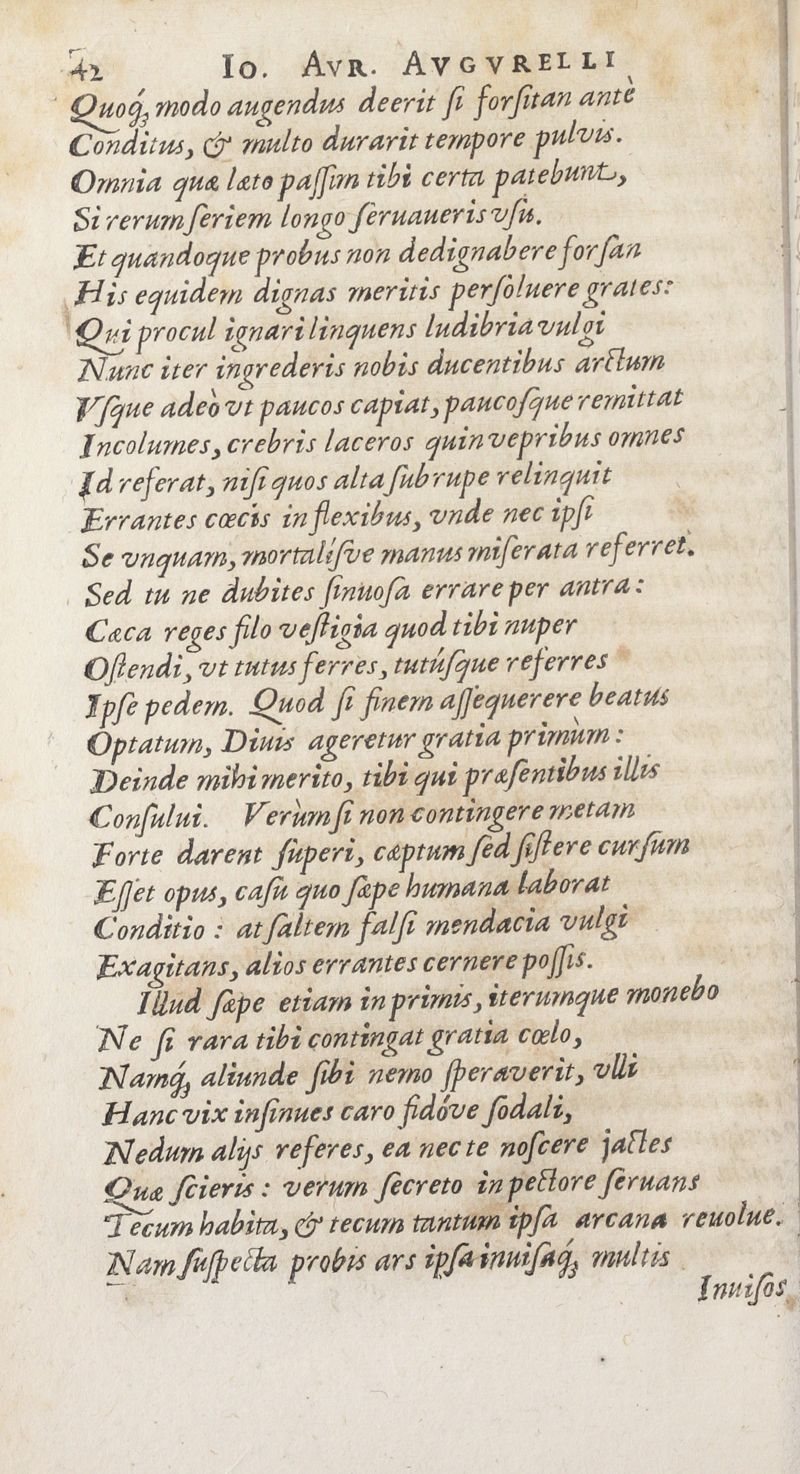 42 Io. Avr. Avgvrelli
Quoq́; modo augendus deerit ſi forſitan antè
Conditus, & multo durarit tempore pulvis.
Omnia quæ læto paſſim tibi certa patebunt,
Si rerum ſeriem longo ſeruaueris vſu.
Et quandoque probus non dedignabere forſan
His equidem dignas meritis perſoluere grates:
Qui procul ignari linquens ludibria vulgi
Nunc iter ingrederis nobis ducentibus arctum
Vſque adeò vt paucos capiat, paucoſque remittat
Incolumes, crebris laceros quin vepribus omnes
Id referat, niſi quos alta ſub rupe relinquit
Errantes cœcis in flexibus, vnde nec ipſi
Se vnquam, mortalíſve manus miſerata referret.
Sed tu ne dubites ſinuoſa errare per antra:
Cæca reges filo veſtigia quod tibi nuper
Oſtendi, vt tutus ferres, tutúſque referres
Ipſe pedem. Quod ſi finem aſſequerere beatus
Optatum, Diuis ageretur gratia primùm:
Deinde mihi merito, tibi qui præſentibus illis
Conſului. Verùm ſi non contingere metam
Forte darent ſuperi, cæptum ſed ſiſtere curſum
Eſſet opus, caſu quo ſæpe humana laborat
Conditio: at ſaltem falſi mendacia vulgi
Exagitans, alios errantes cernere poſſis.
Illud ſæpe etiam in primis, iterumque monebo
Ne ſi rara tibi contingat gratia cœlo,
Namq́; aliunde ſibi nemo ſperaverit, vlli
Hanc vix inſinues caro fidóve ſodali,
Nedum alijs referes, ea nec te noſcere jactes
Quæ ſcieris: verum ſecreto in pectore ſeruans
Tecum habita, & tecum tantum ipſa arcana reuolue.
Nam ſuſpecta probis ars ipſa inuiſaq́; multis
Inuiſos